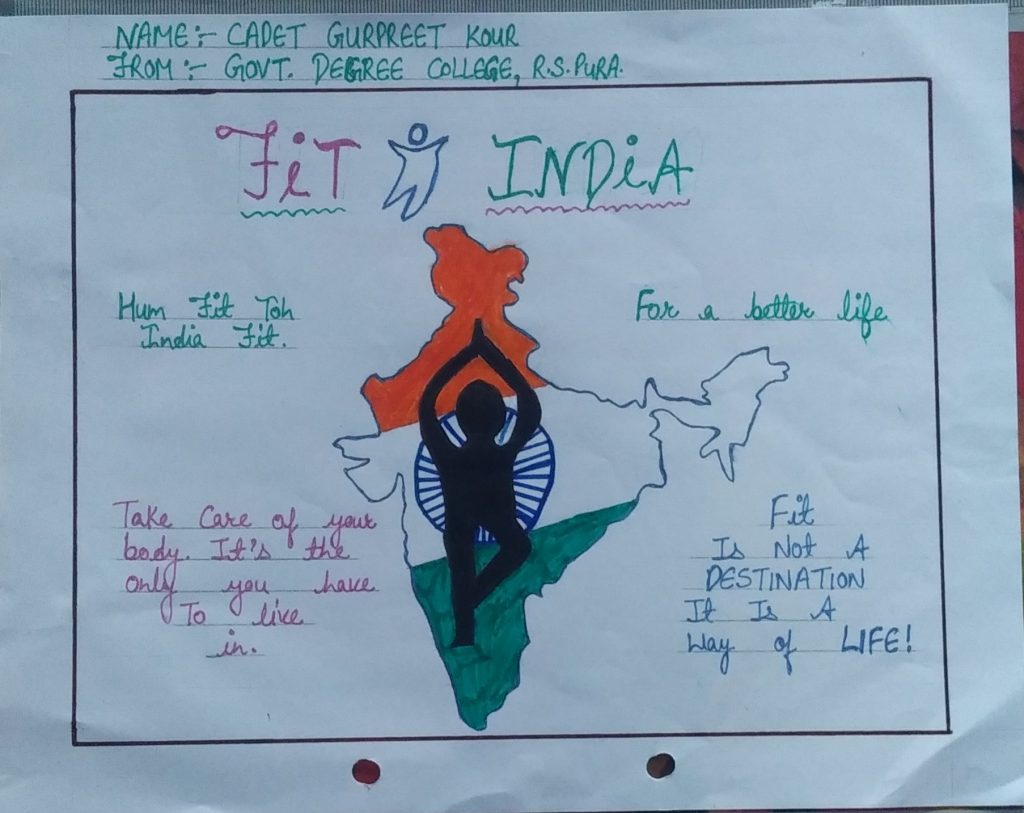 NAME:- CADET GURPREET KOUR
FROM:- GOVT. DEGREE COLLEGE, R.S.PURA.
FiT INDiA
Hum Fit Toh
India Fit.
For a better life
Take Care of your
body. It's the
only you have
To live
in.
Fit
Is Not A
DESTINATION
It Is A
Way of LIFE!